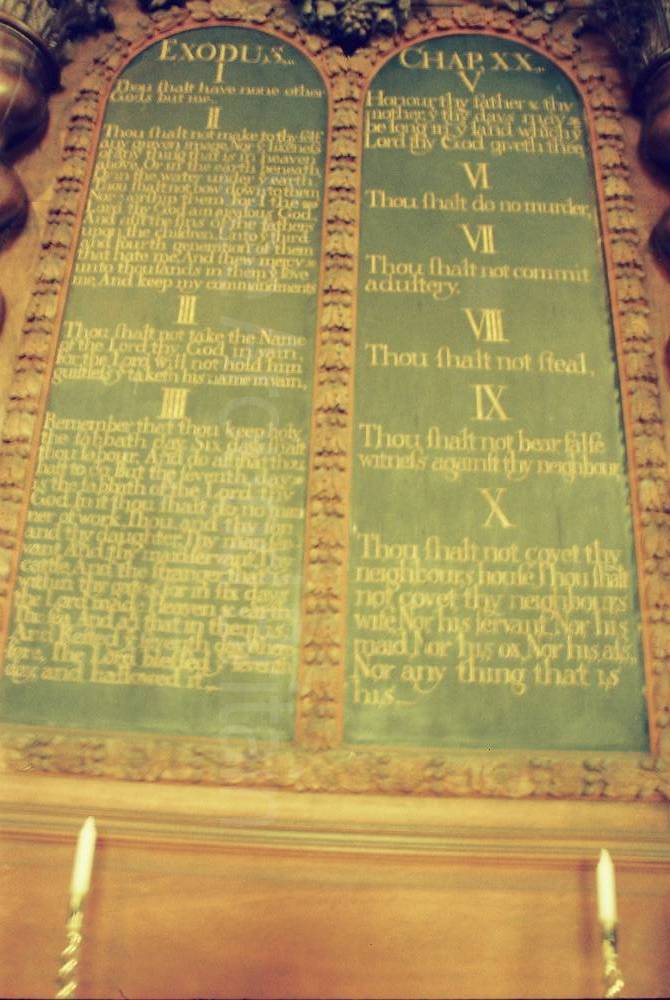 EXODUS.
I
Thou shalt have none other
Gods but me.
II
Thou shalt not make to thy self
any graven image, Nor y likenefs
of any thing that is in heaven
above, Or in the earth beneath
Or in the water under y earth.
Thou shalt not bow down to them
Nor worship them: for I the
Lord thy God am a jealous God
And visit y sins of the fathers
upon the children unto y third
and fourth generation of them
that hate me, And shew mercy
unto thousands in them y love
me, And keep my commandments
III
Thou shalt not take the Name
of the Lord thy God in vain,
for the Lord will not hold him
guiltless y taketh his name in vain,
IIII
Remember that thou keep holy
the sabbath day. Six days shalt
thou labour, And do all that thou
hast to do, But the seventh day
is the sabbath of the Lord thy
God, In it thou shalt do no man
ner of work, Thou, and thy son
and thy daughter, Thy man ser
vant, And thy maid servant, Thy
cattle, And the stranger that is
within thy gates, for in six days
the Lord made Heaven & earth
the sea, And all that in them is
And Rested y seventh day, Where
fore, The Lord blessed y seventh
day, and hallowed it.
CHAP. XX.
V
Honour thy father & thy
mother, y thy days may
be long in y land which y
Lord thy God giveth thee
VI
Thou shalt do no murder,
VII
Thou shalt not commit
adultery.
VIII
Thou shalt not steal,
IX
Thou shalt not bear false
witness against thy neighbour
X
Thou shalt not covet thy
neighbours house Thou shalt
not covet thy neighbours
wife, Nor his servant, Nor his
maid, Nor his ox, Nor his ass,
Nor any thing that is
his.